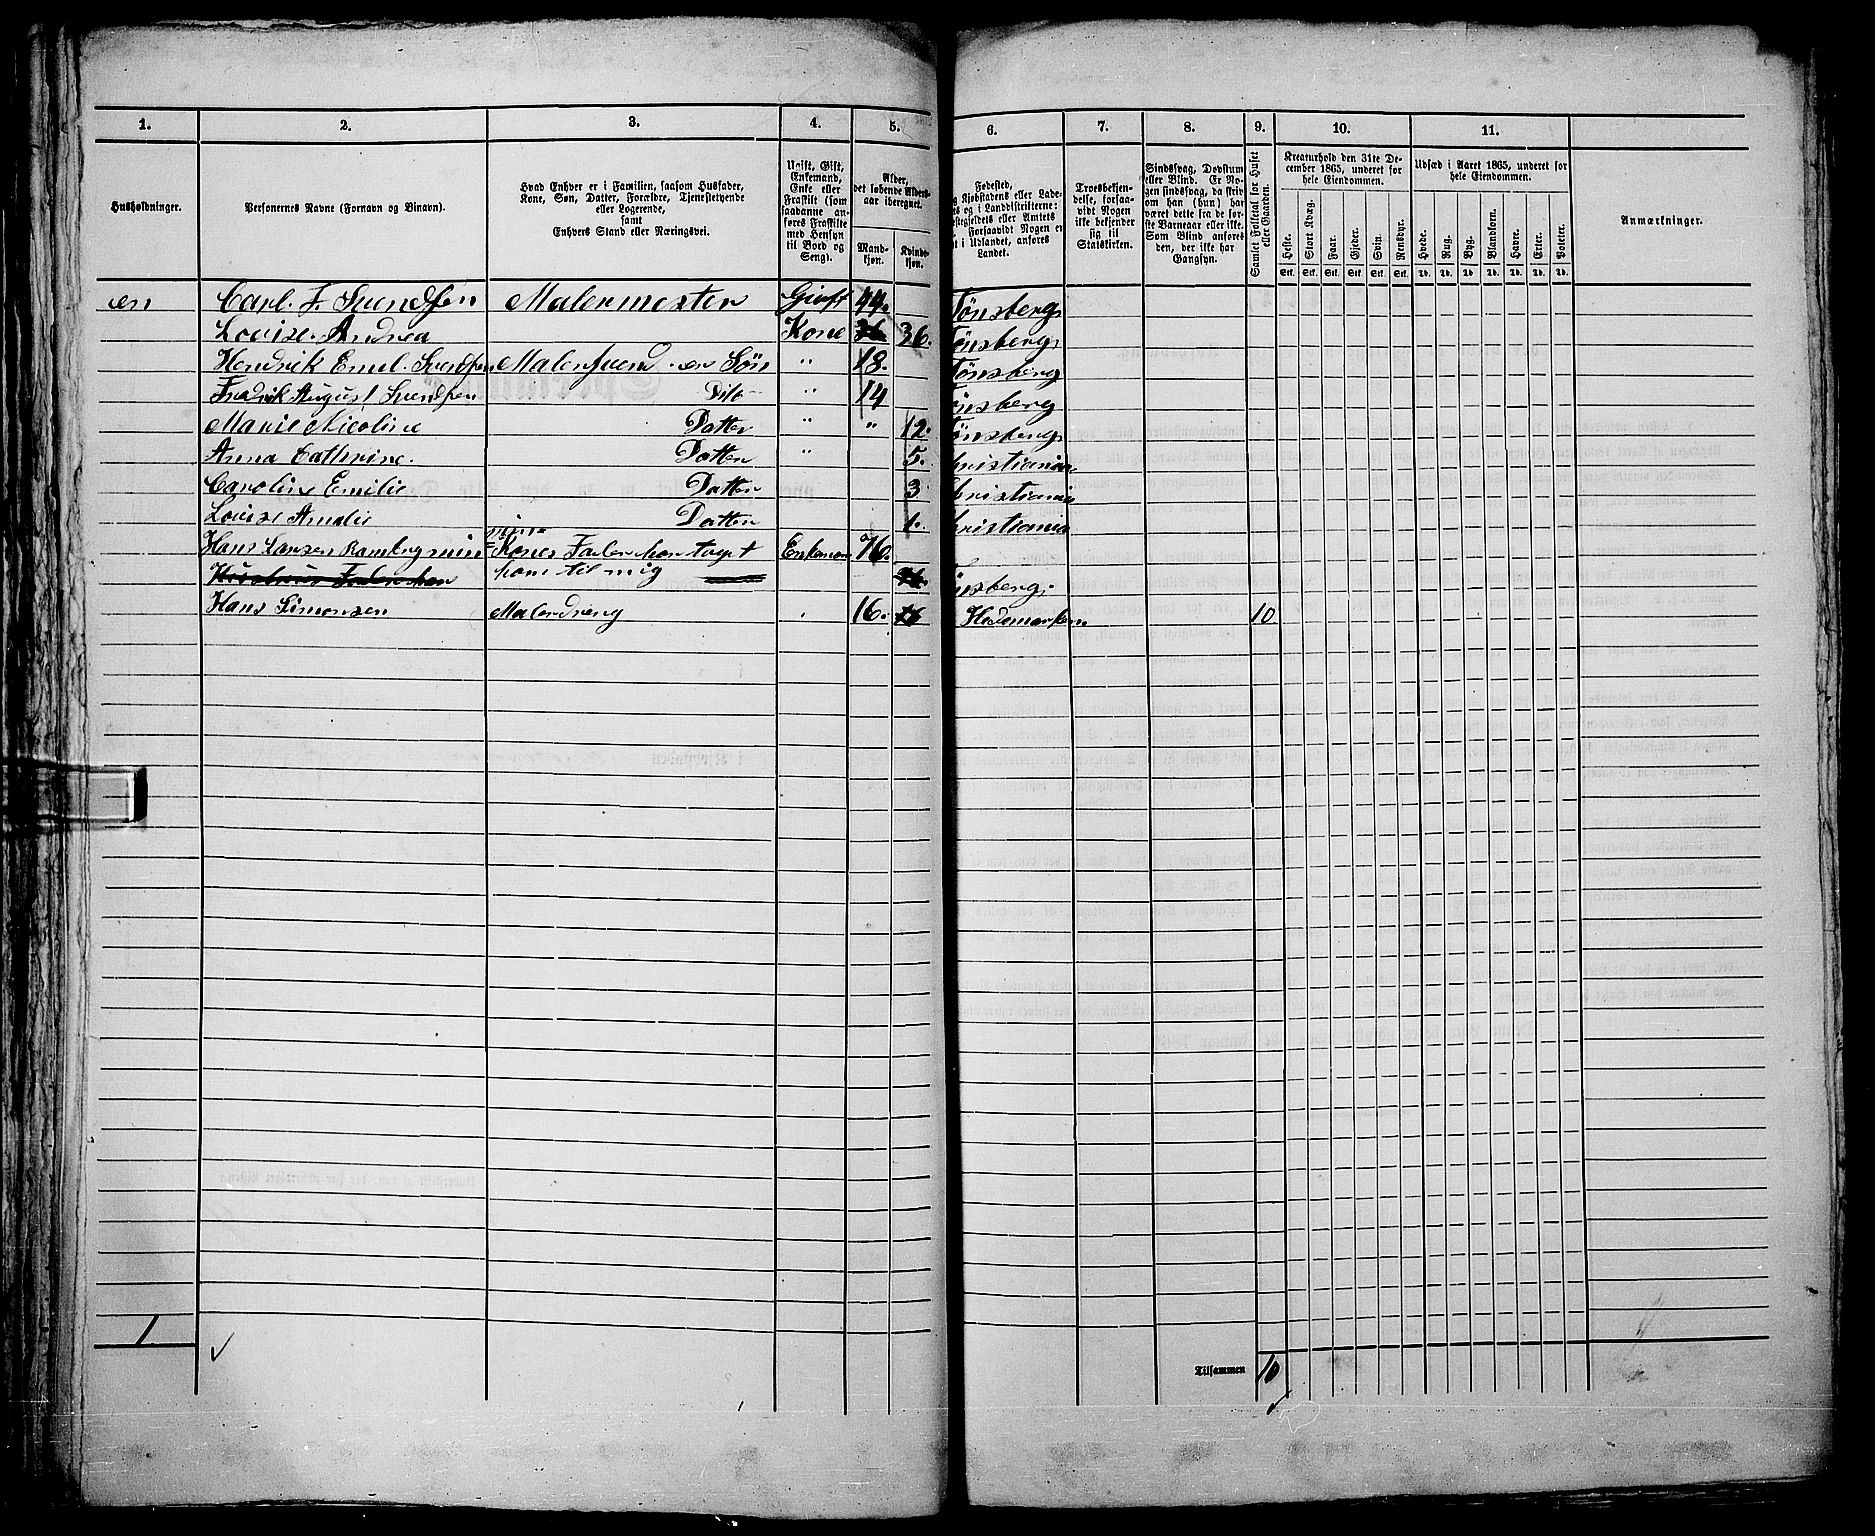 1. 2. 3. 4. 5. 6. 7. 8. 9. 10. 11.
Husholdninger.
Personernes Navne (Fornavn og Binavn).
Hvad Enhver er i Familien, saasom Husfader,
Kone, Søn, Datter, Forældre, Tjenestetyende
eller Logerende,
samt
Enhvers Stand eller Næringsvei.
Ugift, Gift,
Enkemand,
Enke eller
Fraskilt (som
saadanne an-
føres Fraskilte
med Hensyn
til Bord og
Seng).
Alder,
det løbende Alders-
aar iberegnet.
Mand-
kjøn.
Kvinde-
kjøn.
Fødested,
g Kjøbstadens eller Lade-
ts og i Landdistrikterne:
stegjeldets eller Amtets
Forsaavidt Nogen er
t i Udlandet, anføres
Landet.
Troesbekjen-
delse, forsaa-
vidt Nogen
ikke bekjender
sig til
Statskirken.
Sindssvag, Døvstum
eller Blind. Er No-
gen sindssvag, da skriv
om han (hun) har
været dette fra de før-
ste Barneaar eller ikke.
Som Blind anføres
den, der ikke har
Gangsyn.
Samlet Folketal for Huset
eller Gaarden.
Kreaturhold den 31te De-
cember 1865, underet for
hele Eiendommen.
Heste. Stort Kvæg. Faar. Gjeder. Svin. Rensdyr.
Stk. Stk. Stk. Stk. Stk. Stk.
Udsæd i Aaret 1865, underet for
hele Eiendommen.
Hvede. Rug. Byg. Blandkorn. Havre. Erter. Poteter.
Td. Td. Td. Td. Td. Td. Td.
Anmærkninger.
en Carl. F. Svendsen Malermester Givt 44. Tönsberg
Lovise Andrea Kone 36. Tönsberg
Hendrik Emil Svendsen Malersvend en Sön " 18. Tönsberg
Fredrik August Svendsen Dito " 14 önsberg
Marie Nicoline Datter " " 12. önsberg
Anna Cathrine. Datter " 5. hristiania
Caroline Emilie Datter 3 hristiania
Lovise Amalie Datter 1. hristiania
Hans Larsen Ramberg min Kones Fader har taget Enkeman 76.
ham til mig önsberg.
Hans Simonsen Malerdreng 16. Hedemarken 10
1
Tilsammen 10